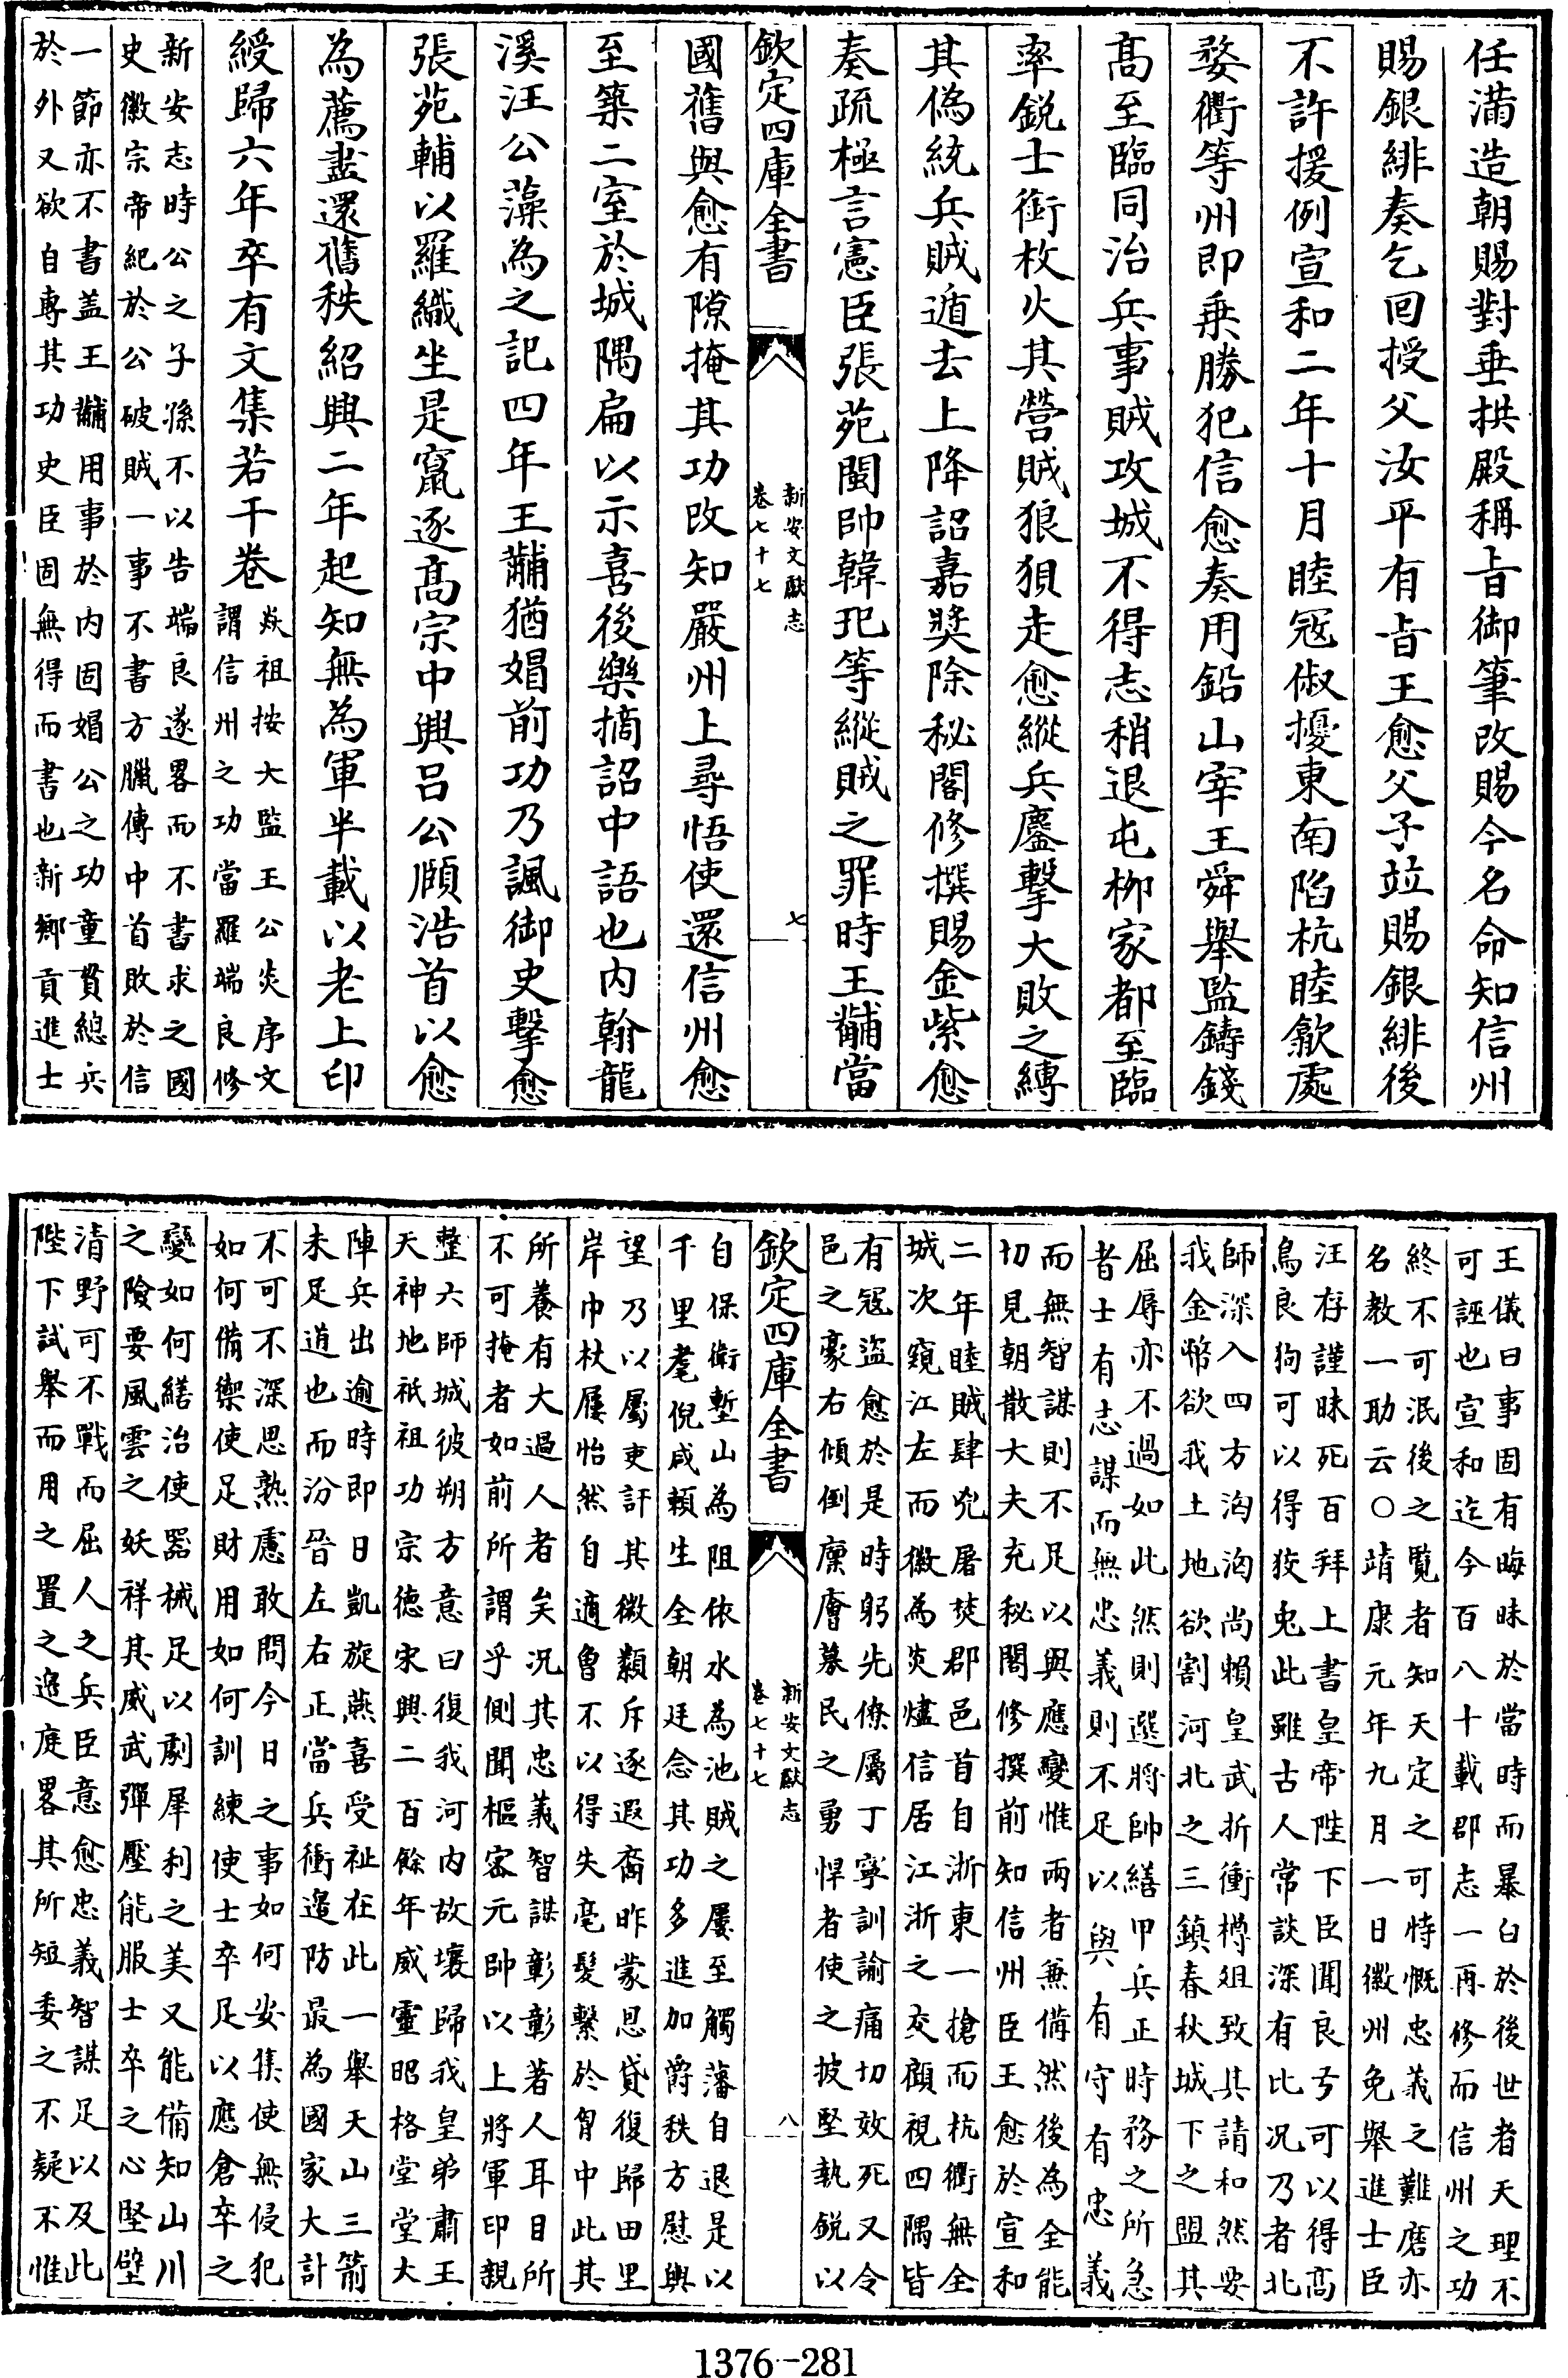 任滿造朝賜對垂拱殿稱㫖御筆改賜今名命知信州
賜銀緋奏乞回授父汝平有㫖王愈父子竝賜銀緋後
不許援例宣和二年十月睦冦俶擾東南陷杭睦歙處
婺衢等州即乗勝犯信愈奏用鉛山宰王舜舉監鑄錢
髙至臨同治兵事賊攻城不得志稍退屯柳家都至臨
率鋭士銜枚火其營賊狼狽走愈縱兵鏖擊大敗之縛
其偽統兵賊遁去上降詔嘉奬除秘閣修撰賜金紫愈
奏疏極言憲臣張苑閫帥韓玘等縱賊之罪時王黼當
欽定四庫全書
新安文獻志
卷七十七
七
國舊與愈有隙掩其功改知嚴州上尋悟使還信州愈
至築二室於城隅扁以示喜後樂摘詔中語也内翰龍
溪汪公藻為之記四年王黼猶娼前功乃諷御史擊愈
張苑輔以羅織坐是竄逐髙宗中興吕公頤浩首以愈
為薦盡還舊秩紹興二年起知無為軍半載以老上印
綬歸六年卒有文集若干卷
炎祖按大監王公炎序文
謂信州之功當羅端良修
新安志時公之子孫不以告端良遂畧而不書求之國
史徽宗帝紀於公破賊一事不書方臘傳中首敗於信
一節亦不書盖王黼用事於内固娼公之功童貫總兵
於外又欲自專其功史臣固無得而書也新鄉貢進士
王儀曰事固有晦昧於當時而暴白於後世者天理不
可誣也宣和迄今百八十載郡志一再修而信州之功
終不可泯後之覽者知天定之可恃慨忠義之難磨亦
名教一助云○靖康元年九月一日徽州免舉進士臣
汪存謹昧死百拜上書皇帝陛下臣聞良弓可以得髙
鳥良狗可以得狡兎此雖古人常談深有比况乃者北
師深入四方洶洶尚賴皇武折衝樽俎致其請和然要
我金幣欲我土地欲割河北之三鎮春秋城下之盟其
屈辱亦不過如此然則選將帥繕甲兵正時務之所急
者士有志謀而無忠義則不足以與有守有忠義
而無智謀則不足以興應變惟兩者兼備然後為全能
切見朝散大夫充秘閣修撰前知信州臣王愈於宣和
二年睦賊肆兇屠焚郡邑首自浙東一搶而杭衢無全
城次窺江左而徽為炎燼信居江浙之交顧視四隅皆
有冦盜愈於是時躬先僚屬丁寧訓諭痛切效死又令
邑之豪右傾倒廩膺募民之勇悍者使之披堅執鋭以
欽定四庫全書
新安文獻志
卷七十七
八
自保衛塹山為阻依水為池賊之屢至觸藩自退是以
千里耄倪咸頼生全朝廷念其功多進加爵秩方慰輿
望乃以屬吏訐其微纇斥逐遐裔昨蒙恩貸復歸田里
岸巾杖屨怡然自適曾不以得失毫髮繫於胷中此其
所養有大過人者矣况其忠義智謀彰彰著人耳目所
不可掩者如前所謂乎側聞樞密元帥以上將軍印親
整六師城彼朔方意曰復我河内故壤歸我皇弟肅王
天神地祇祖功宗徳宋興二百餘年威靈昭格堂堂大
陣兵出逾時即日凱旋燕喜受祉在此一舉天山三箭
未足道也而汾晉左右正當兵衝邉防最為國家大計
不可不深思熟慮敢問今日之事如何安集使無侵犯
如何備禦使足財用如何訓練使士卒足以應倉卒之
變如何繕治使器械足以劘犀利之美又能備知山川
之險要風雲之妖祥其威武彈壓能服士卒之心堅壁
清野可不戰而屈人之兵臣意愈忠義智謀足以及此
陛下試舉而用之置之邉庭畧其所短委之不疑不惟
1376-281